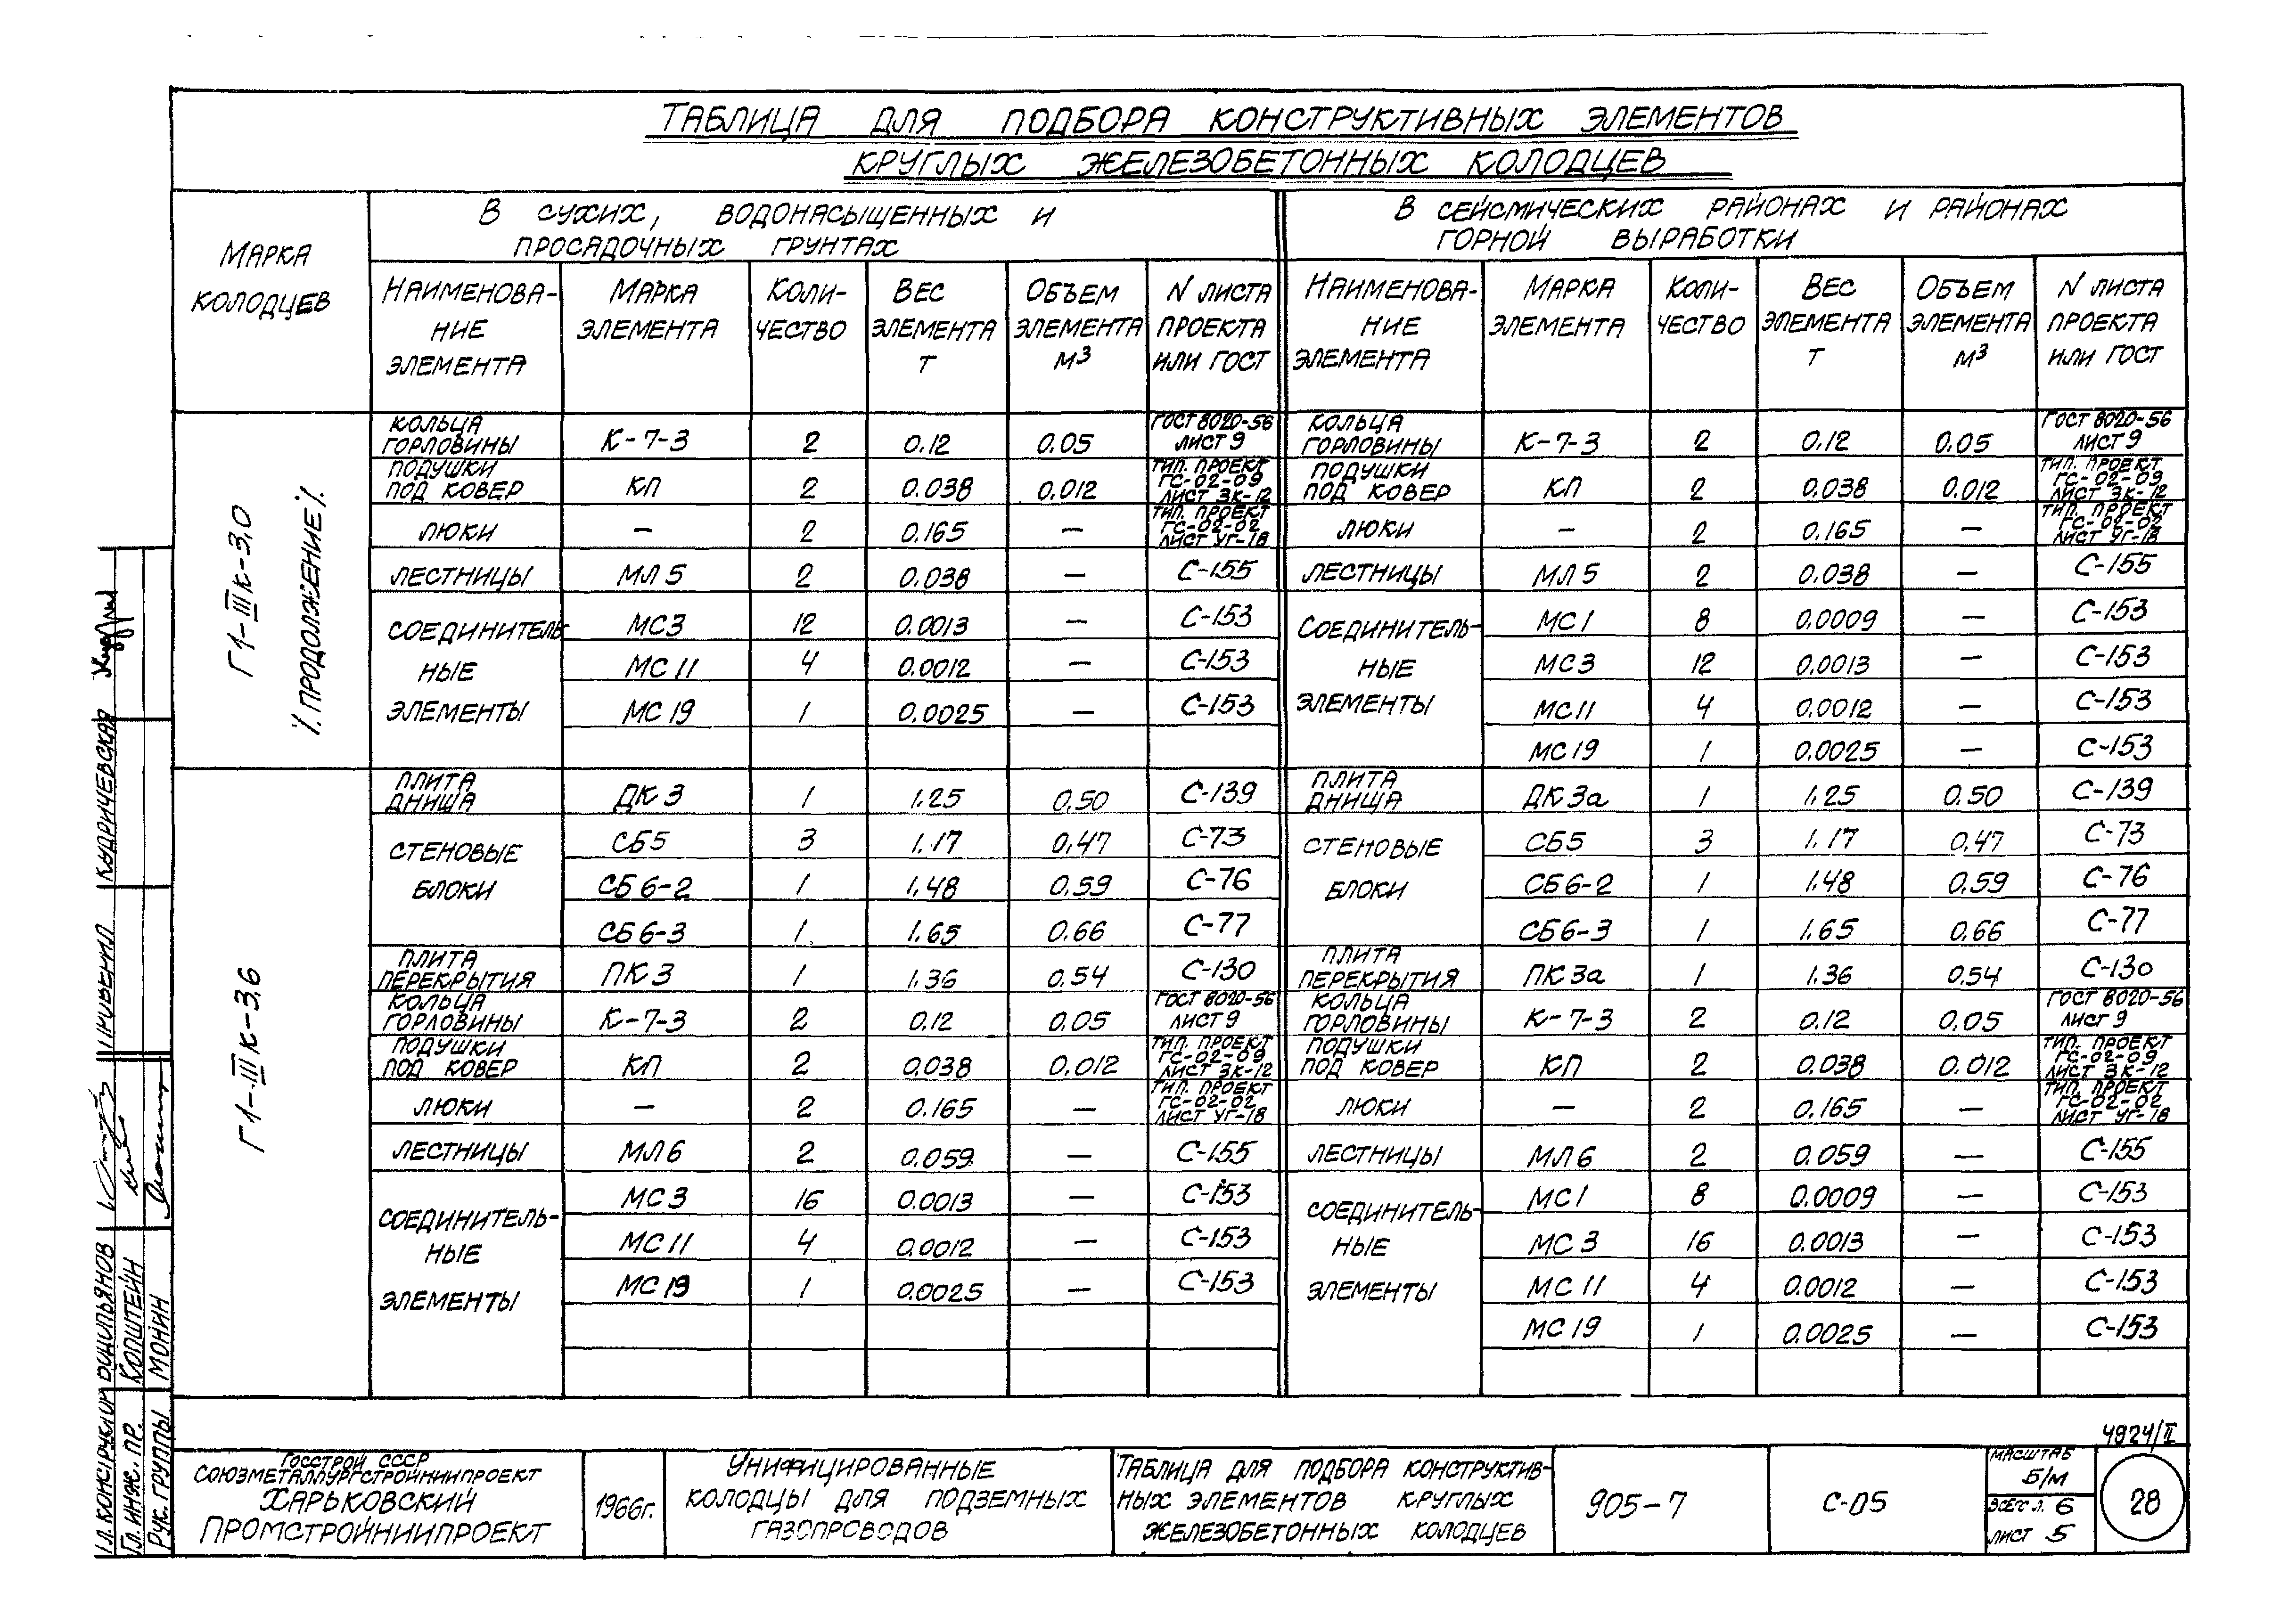 ТАБЛИЦА ДЛЯ ПОДБОРА КОНСТРУКТИВНЫХ ЭЛЕМЕНТОВ
КРУГЛЫХ ЖЕЛЕЗОБЕТОННЫХ КОЛОДЦЕВ
МАРКА
КОЛОДЦЕВ
В СУХИХ, ВОДОНАСЫЩЕННЫХ И
ПРОСАДОЧНЫХ ГРУНТАХ
В СЕЙСМИЧЕСКИХ РАЙОНАХ И РАЙОНАХ
ГОРНОЙ ВЫРАБОТКИ
НАИМЕНОВА- МАРКА КОЛИ- ВЕС ОБЪЕМ N ЛИСТА НАИМЕНОВА- МАРКА КОЛИ- ВЕС ОБЪЕМ N ЛИСТА
НИЕ ЭЛЕМЕНТА ЧЕСТВО ЭЛЕМЕНТА ЭЛЕМЕНТА ПРОЕКТА НИЕ ЭЛЕМЕНТА ЧЕСТВО ЭЛЕМЕНТА ЭЛЕМЕНТА ПРОЕКТА
ЭЛЕМЕНТА Т М3 ИЛИ ГОСТ ЭЛЕМЕНТА Т М3 ИЛИ ГОСТ
Г1-IIIК-3,0
/ПРОДОЛЖЕНИЕ/.
КОЛЬЦА ГОСТ 8020-56 КОЛЬЦА ГОСТ 8020-56
ГОРЛОВИНЫ К-7-3 2 0.12 0.05 ЛИСТ 9 ГОРЛОВИНЫ К-7-3 2 0.12 0.05 ЛИСТ 9
ПОДУШКИ ТИП. ПРОЕКТ ПОДУШКИ ТИП. ПРОЕКТ
ПОД КОВЕР КП 2 0.038 0.012 ГС-02-09 ПОД КОВЕР КП 2 0.038 0.012 ГС-02-09
ЛИСТ ЗК-12 ЛИСТ ЗК-12
ТИП. ПРОЕКТ ТИП. ПРОЕКТ
ЛЮКИ — 2 0.165 — ГС-02-02 ЛЮКИ — 2 0.165 — ГС-02-02
ЛИСТ УГ-18 ЛИСТ УГ-18
ЛЕСТНИЦЫ МЛ 5 2 0.038 — С-155 ЛЕСТНИЦЫ МЛ 5 2 0.038 — С-155
СОЕДИНИТЕЛЬ- МС3 12 0.0013 — С-153 СОЕДИНИТЕЛЬ- МС1 8 0.0009 — С-153
НЫЕ МС 11 4 0.0012 — С-153 НЫЕ МС3 12 0.0013 — С-153
ЭЛЕМЕНТЫ МС 19 1 0.0025 — С-153 ЭЛЕМЕНТЫ МС11 4 0.0012 — С-153
МС 19 1 0.0025 — С-153
Г1-IIIК-3,6
ПЛИТА ПЛИТА
ДНИЩА ДК 3 1 1.25 0.50 С-139 ДНИЩА ДК 3а 1 1.25 0.50 С-139
СТЕНОВЫЕ СБ5 3 1.17 0.47 С-73 СТЕНОВЫЕ СБ5 3 1.17 0.47 С-73
БЛОКИ СБ 6-2 1 1.48 0.59 С-76 БЛОКИ СБ6-2 1 1.48 0.59 С-76
СБ 6-3 1 1.65 0.66 С-77 СБ6-3 1 1.65 0.66 С-77
ПЛИТА ПЛИТА
ПЕРЕКРЫТИЯ ПК 3 1 1.36 0.54 С-130 ПЕРЕКРЫТИЯ ПК 3а 1 1.36 0.54 С-130
КОЛЬЦА ГОСТ 8020-56 КОЛЬЦА ГОСТ 8020-56
ГОРЛОВИНЫ К-7-3 2 0.12 0.05 ЛИСТ 9 ГОРЛОВИНЫ К-7-3 2 0.12 0.05 ЛИСТ 9
ПОДУШКИ ТИП. ПРОЕКТ ПОДУШКИ ТИП. ПРОЕКТ
ПОД КОВЕР КП 2 0.038 0.012 ГС-02-09 ПОД КОВЕР КП 2 0.038 0.012 ГС-02-09
ЛИСТ ЗК-12 ЛИСТ ЗК-12
ТИП. ПРОЕКТ ТИП. ПРОЕКТ
ЛЮКИ — 2 0.165 — ГС-02-02 ЛЮКИ — 2 0.165 — ГС-02-02
ЛИСТ УГ-18 ЛИСТ УГ-18
ЛЕСТНИЦЫ МЛ6 2 0.059 — С-155 ЛЕСТНИЦЫ МЛ6 2 0.059 — С-155
СОЕДИНИТЕЛЬ- МС 3 16 0.0013 — С-153 СОЕДИНИТЕЛЬ- МС1 8 0.0009 — С-153
НЫЕ МС 11 4 0.0012 — С-153 НЫЕ МС 3 16 0.0013 — С-153
ЭЛЕМЕНТЫ МС 19 1 0.0025 — С-153 ЭЛЕМЕНТЫ МС 11 4 0.0012 — С-153
МС 19 1 0.0025 — С-153
4924/II
ГОССТРОЙ СССР
СОЮЗМЕТАЛЛУРГСТРОЙНИИПРОЕКТ
ХАРЬКОВСКИЙ
ПРОМСТРОЙНИИПРОЕКТ
1966г.
УНИФИЦИРОВАННЫЕ
КОЛОДЦЫ ДЛЯ ПОДЗЕМНЫХ
ГАЗОПРОВОДОВ
ТАБЛИЦА ДЛЯ ПОДБОРА КОНСТРУКТИВ-
НЫХ ЭЛЕМЕНТОВ КРУГЛЫХ
ЖЕЛЕЗОБЕТОННЫХ КОЛОДЦЕВ
905-7
С-05
МАСШТАБ
Б/М
ВСЕГО Л. 6
ЛИСТ 5
28
КУДРИЧЕВСКАЯ
ГЛ. ИНЖ. ПР. КОПШТЕЙН
РУК. ГРУППЫ МОНИН